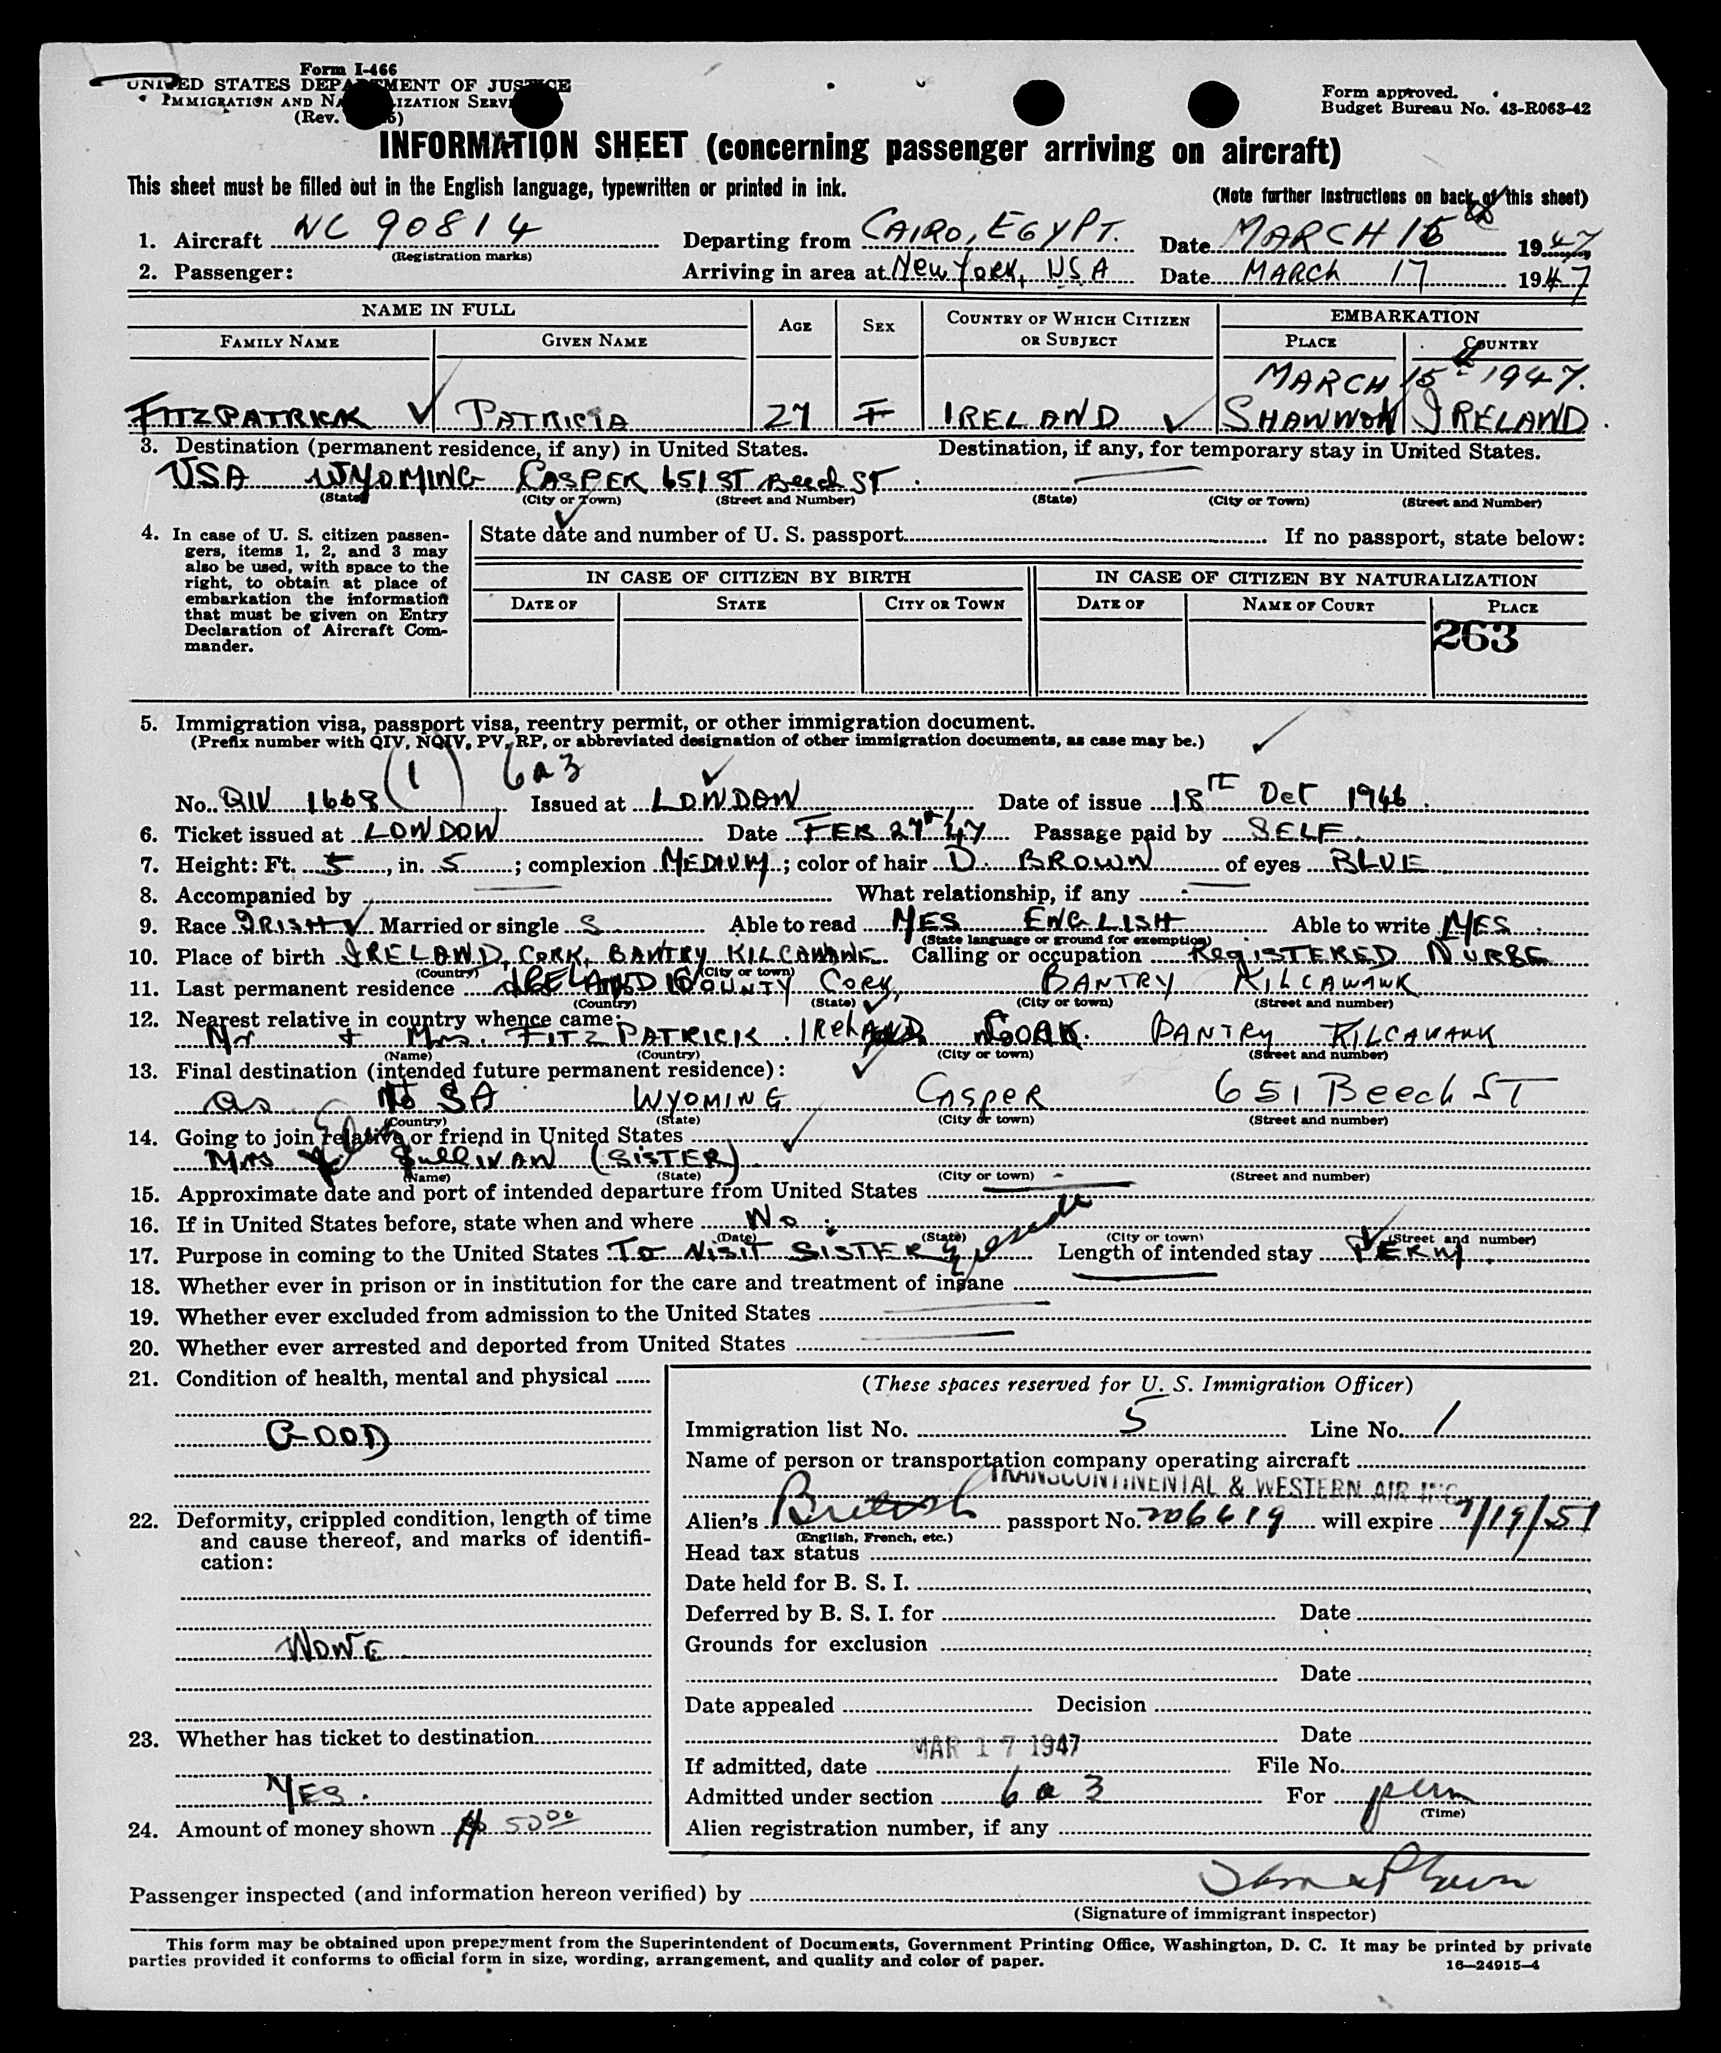 Form I-466
UNITED STATES DEPARTMENT OF JUSTICE
IMMIGRATION AND NATURALIZATION SERVICE
(Rev.
Form approved.
Budget Bureau No. 43-R063-42
INFORMATION SHEET (concerning passenger arriving on aircraft)
This sheet must be filled out in the English language, typewritten or printed in ink.
(Note further instructions on back of this sheet)
1. Aircraft NC 90814 Departing from CAIRO, EGYPT. Date MARCH 15 1947
(Registration marks)
2. Passenger: Arriving in area at New York, USA Date MARCH 17 1947
NAME IN FULL AGE SEX COUNTRY OF WHICH CITIZEN OR SUBJECT EMBARKATION
FAMILY NAME GIVEN NAME PLACE COUNTRY
MARCH 15 1947.
FITZPATRICK PATRICIA 27 F IRELAND SHANNON IRELAND.
3. Destination (permanent residence, if any) in United States. Destination, if any, for temporary stay in United States.
USA WYOMING CASPER 651 ST Beech ST.
(State) (City or Town) (Street and Number) (State) (City or Town) (Street and Number)
4. In case of U. S. citizen passengers, items 1, 2, and 3 may
also be used, with space to the
right, to obtain at place of
embarkation the information
that must be given on Entry
Declaration of Aircraft Commander.
State date and number of U. S. passport If no passport, state below:
IN CASE OF CITIZEN BY BIRTH IN CASE OF CITIZEN BY NATURALIZATION
DATE OF STATE CITY OR TOWN DATE OF NAME OF COURT PLACE
263
5. Immigration visa, passport visa, reentry permit, or other immigration document.
(Prefix number with QIV, NQIV, PV, RP, or abbreviated designation of other immigration documents, as case may be.)
(1) 6a3
No. QIV 1668 Issued at LONDON Date of issue 18TH Oct 1946.
6. Ticket issued at LONDON Date FEB 27th 47 Passage paid by SELF.
7. Height: Ft. 5, in. 5; complexion MEDIUM; color of hair D. BROWN of eyes BLUE
8. Accompanied by — What relationship, if any —
9. Race IRISH Married or single S Able to read YES ENGLISH Able to write YES
(State language or ground for exemption)
10. Place of birth IRELAND, CORK, BANTRY KILCAWANE. Calling or occupation REGISTERED NURSE
(Country) (City or town)
11. Last permanent residence IRELAND COUNTY CORK, BANTRY KILCAWANK
(Country) (State) (City or town) (Street and number)
12. Nearest relative in country whence came:
Mr + Mrs. FITZPATRICK. IRELAND CORK. BANTRY KILCAWANK
(Name) (Country) (City or town) (Street and number)
13. Final destination (intended future permanent residence):
as USA WYOMING CASPER 651 Beech ST
(Country) (State) (City or town) (Street and number)
14. Going to join relative or friend in United States
Mrs Sullivan (SISTER)
(Name) (State) (City or town) (Street and number)
15. Approximate date and port of intended departure from United States —
16. If in United States before, state when and where No.
(Date) (State) (City or town) (Street and number)
17. Purpose in coming to the United States TO VISIT SISTER & reside Length of intended stay PERM.
18. Whether ever in prison or in institution for the care and treatment of insane —
19. Whether ever excluded from admission to the United States —
20. Whether ever arrested and deported from United States —
21. Condition of health, mental and physical
GOOD
22. Deformity, crippled condition, length of time
and cause thereof, and marks of identification:
NONE
23. Whether has ticket to destination
YES.
24. Amount of money shown $ 50.00
(These spaces reserved for U. S. Immigration Officer)
Immigration list No. 5 Line No. 1
Name of person or transportation company operating aircraft
TRANSCONTINENTAL & WESTERN AIR INC
Alien's British passport No. 206619 will expire 7/19/51
(English, French, etc.)
Head tax status
Date held for B. S. I.
Deferred by B. S. I. for Date
Grounds for exclusion
Date
Date appealed Decision
Date
If admitted, date MAR 17 1947 File No.
Admitted under section 6 a 3 For perm
(Time)
Alien registration number, if any
Passenger inspected (and information hereon verified) by
(Signature of immigrant inspector)
This form may be obtained upon prepayment from the Superintendent of Documents, Government Printing Office, Washington, D. C. It may be printed by private
parties provided it conforms to official form in size, wording, arrangement, and quality and color of paper.
16—24915-4